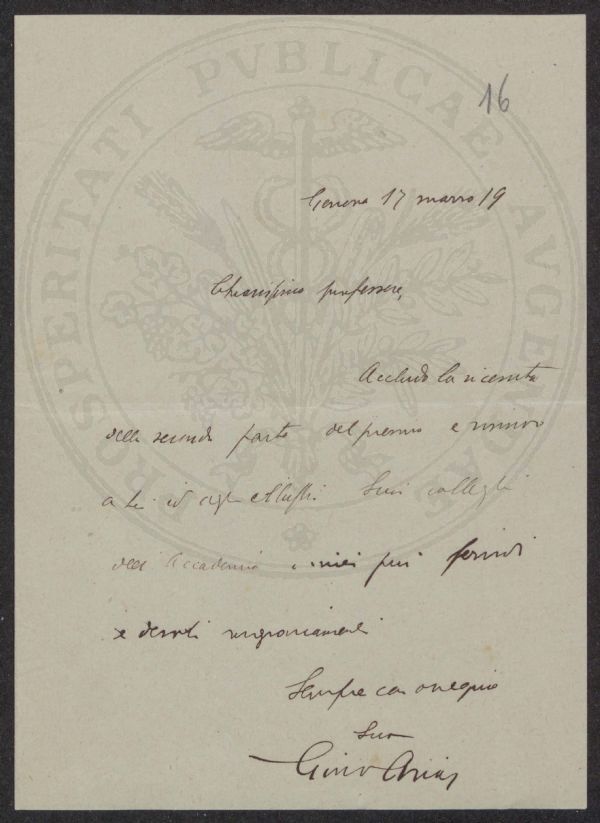 PROSPERITATI PVBLICAE AVGENDAE
16
Genova 17 marzo 19
Chiarissimo professore,
Accludo la ricevuta
della seconda parte del premio e rinnovo
a Lei ed agli illustri Suoi colleghi
dell'Accademia i miei più fervidi
e devoti ringraziamenti
Sempre con ossequio
Suo
Gino Arias